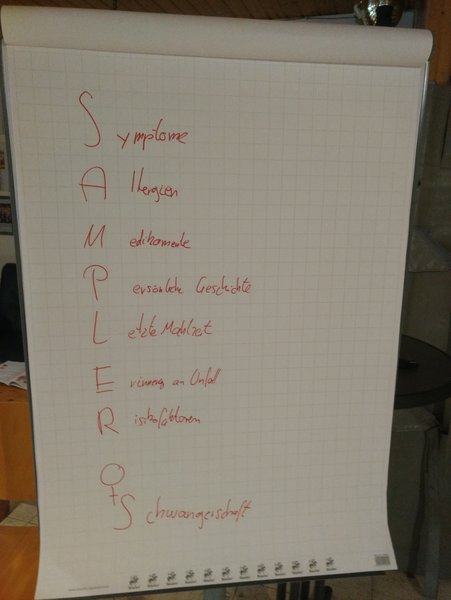 Symptome
Allergien
Medikamente
Persönliche Geschichte
Letzte Mahlzeit
Erinnerung an Unfall
Risikofaktoren
♀ Schwangerschaft